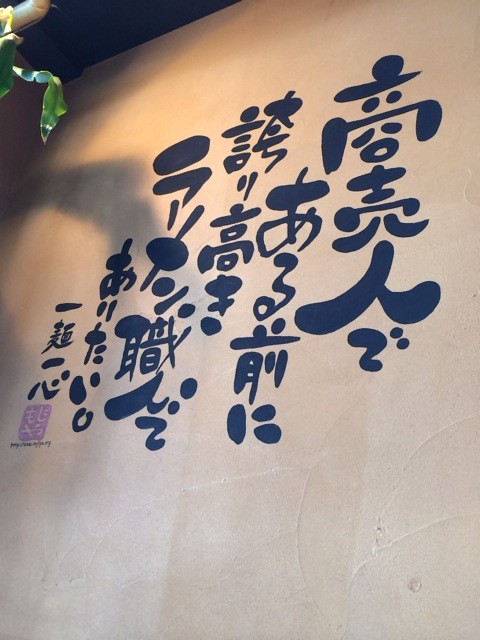 商売人で
ある前に
誇り高き
ラーメン職人で
ありたい。
一麺一心